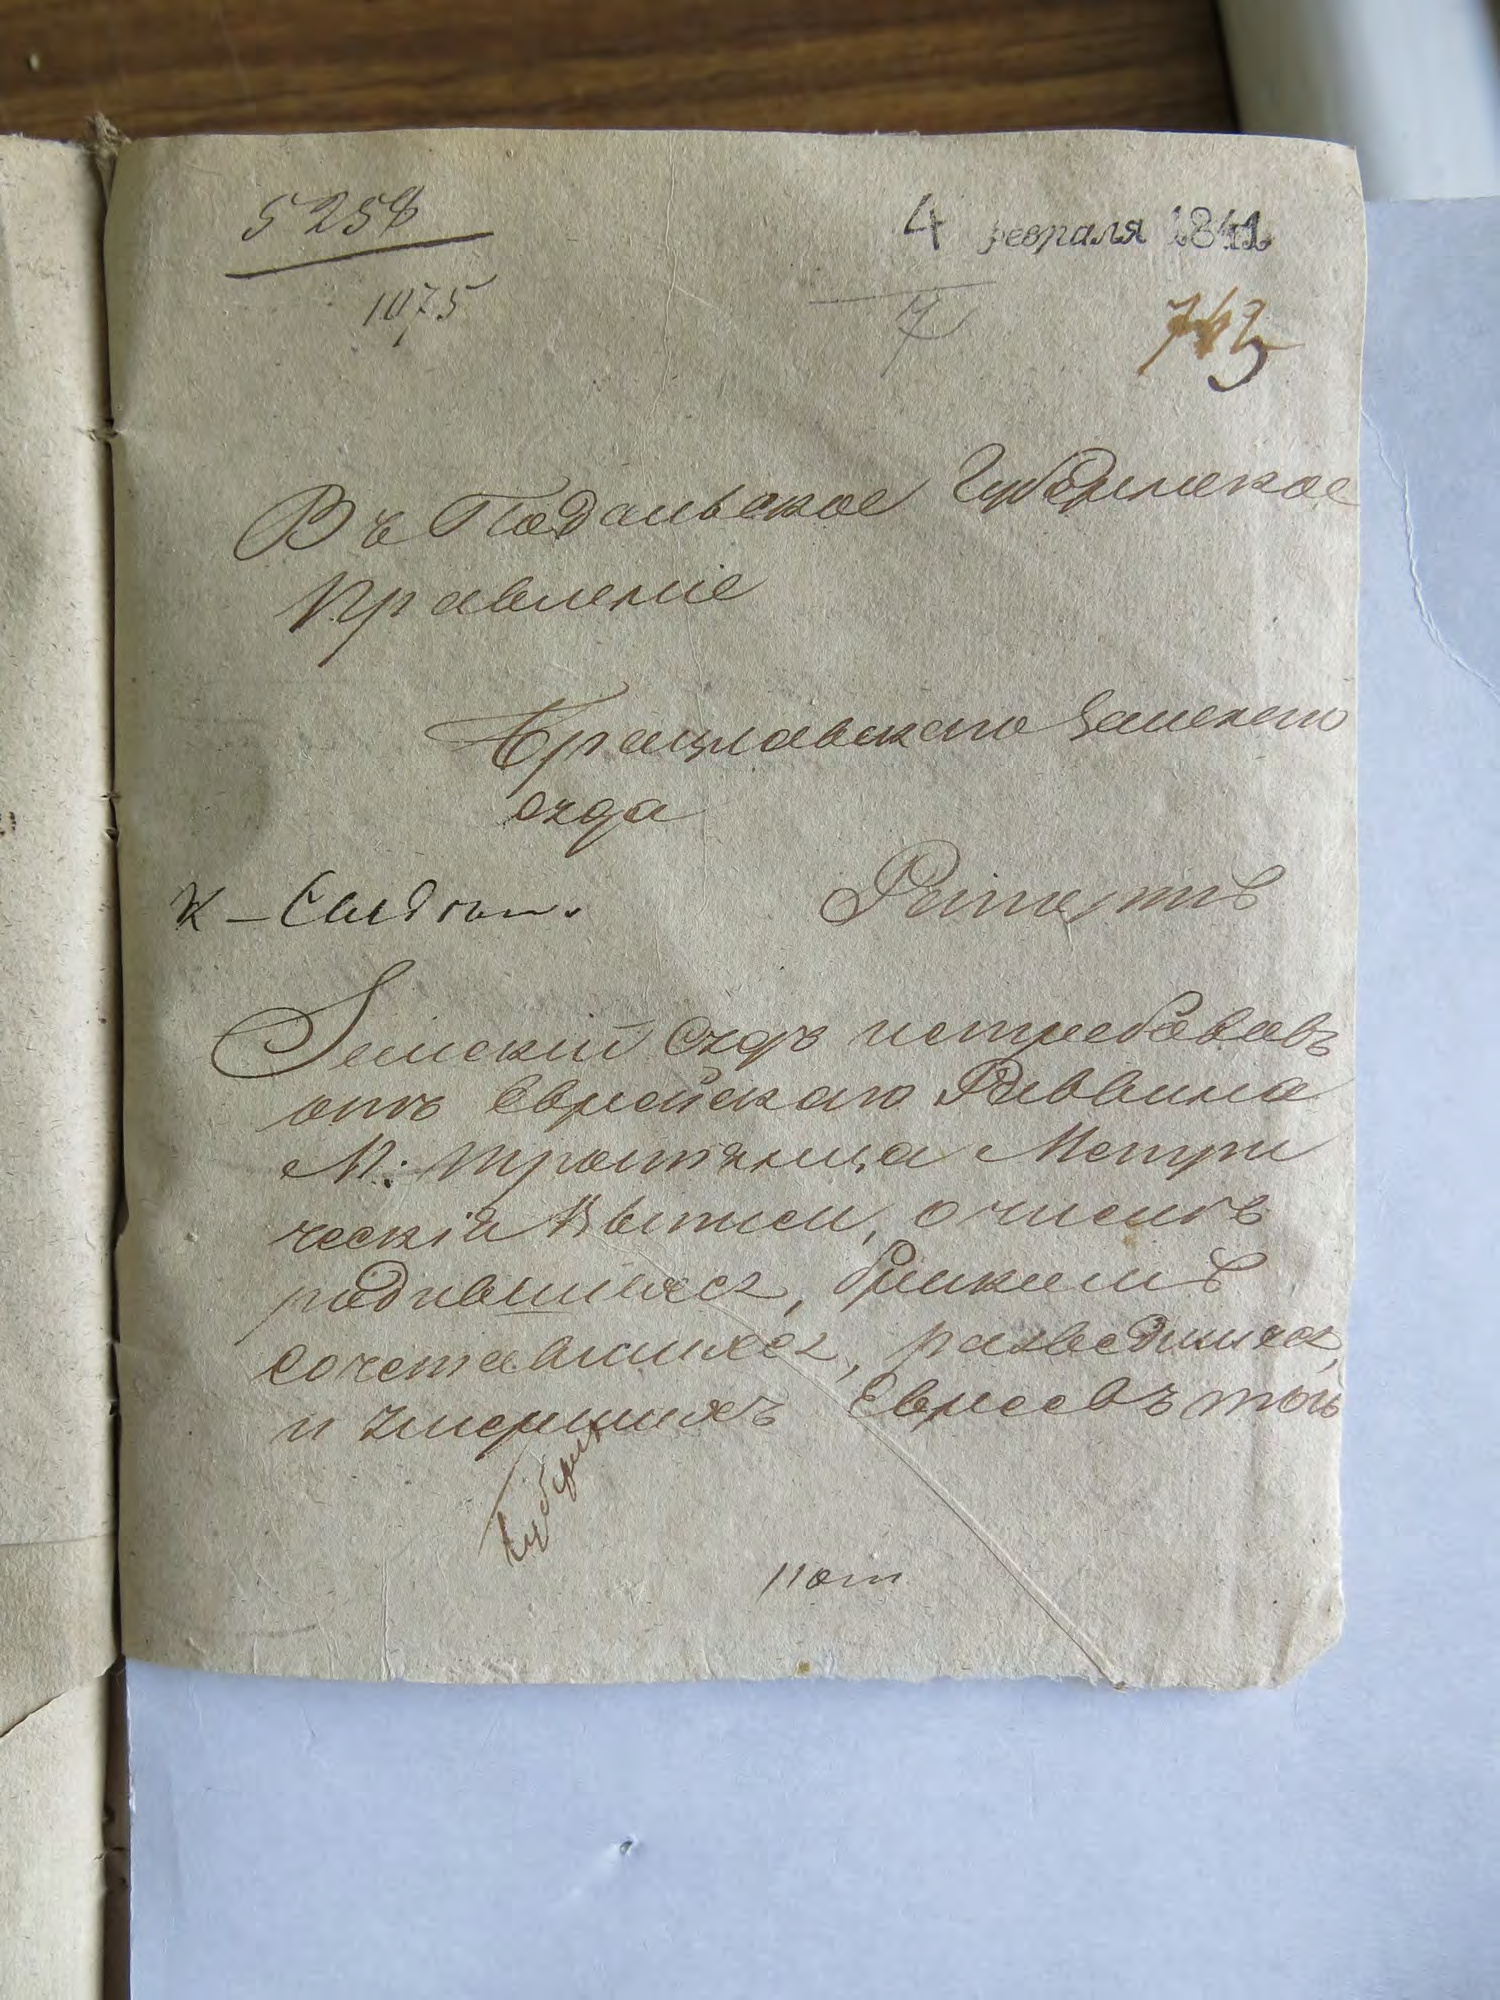 5258
4 февраля 1841
1075
7
743
Въ Подольское Губернское
Правленіе
Брацлавскаго Земскаго
суда
Рапортъ
К –
Земскій Судъ истребовавъ
отъ Еврейскаго Раввина
М: Тростянца Метри
ческія Выписи, о числѣ
родившихся, бракомъ
сочетавшихся, разведшихся,
и умершихъ Евреевъ той